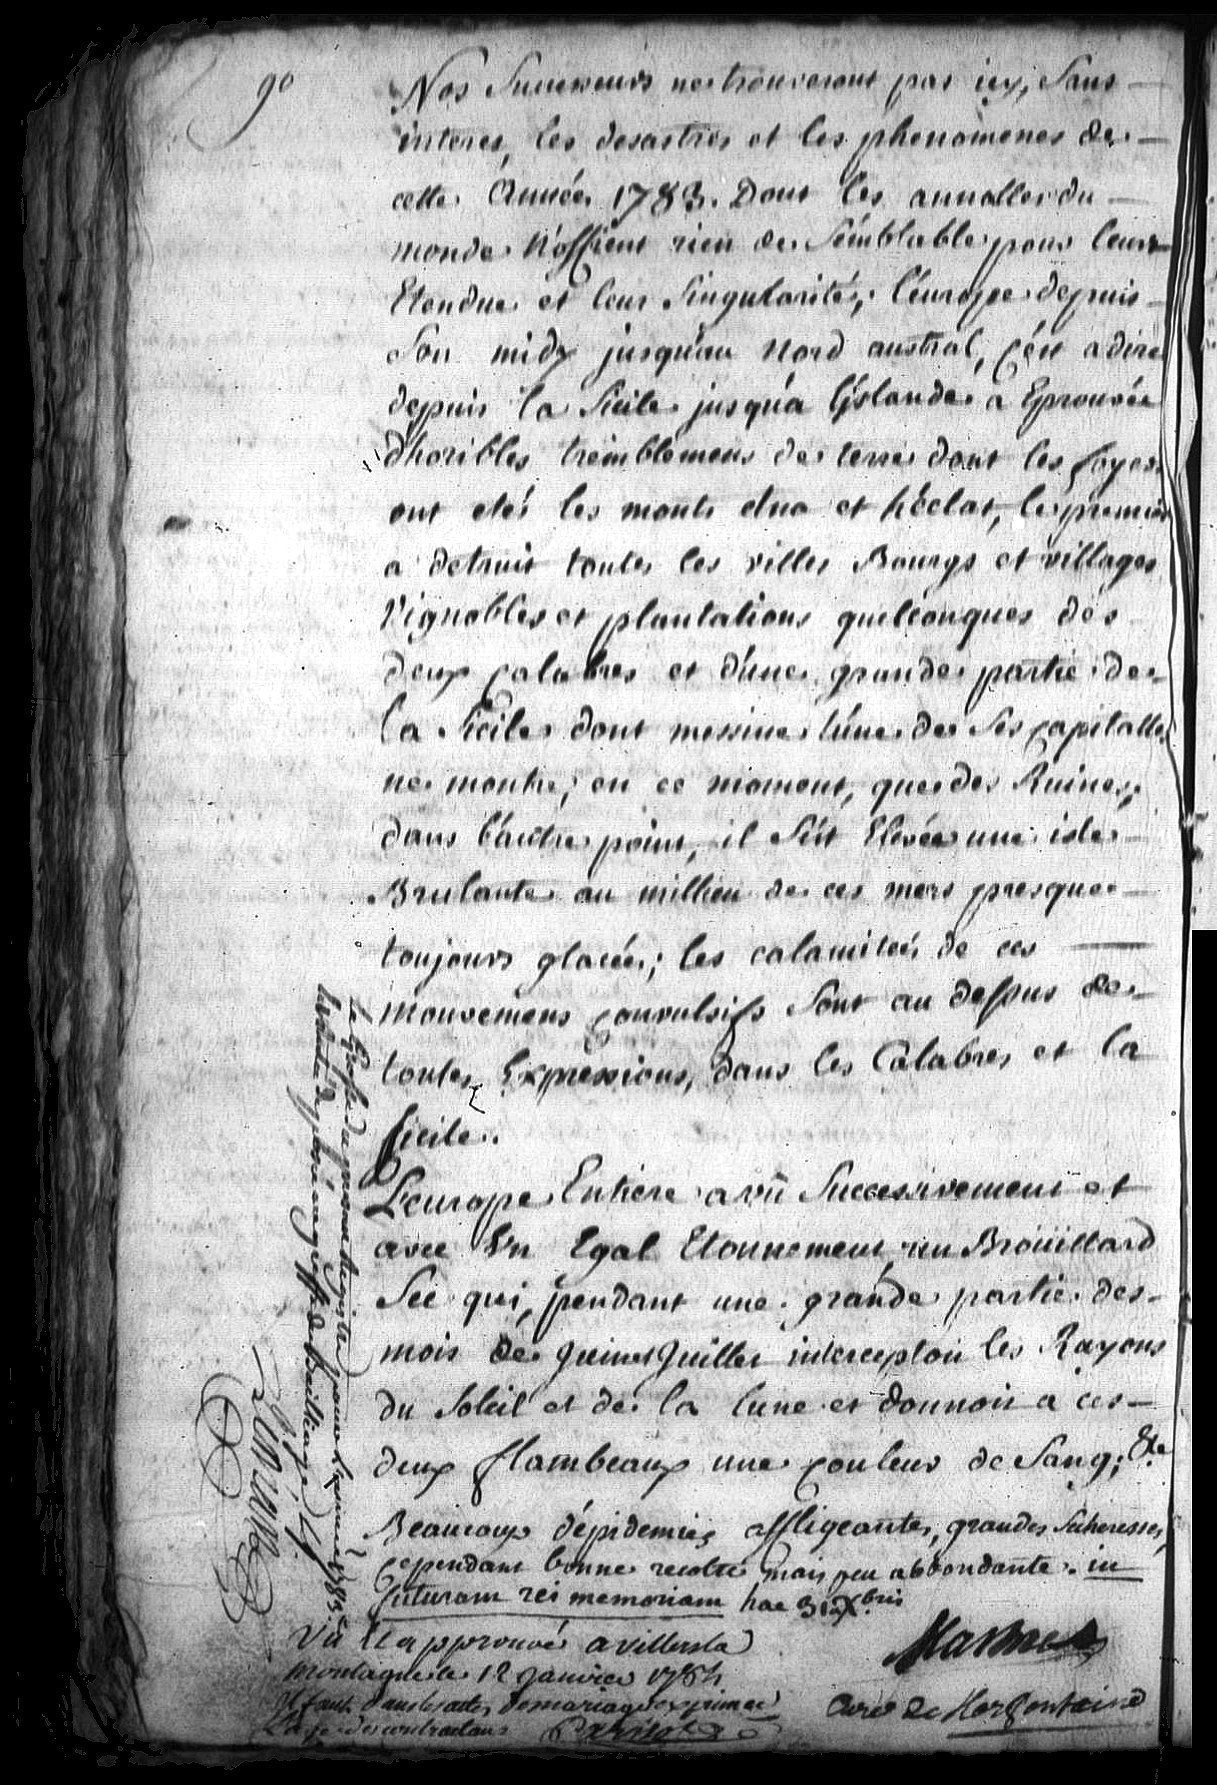 90
Nos Successeurs ne trouveront pas icy, Sans
interes, les desastres et les phenomenes de
cette Année 1783. Dont les annalles du
monde N'offrent rien de Sémblable pour leur
Etendue et leur Singularité; l'éurope depuis
Son midy jusqu'au Nord austral, c'ést a dire
depuis la Sicile jusqu'a l'jslande a Eprouvée
d'horibles tremblemens de terre dont les foyers
ont etés les monts etna et héclat, le premier
a detruit toutes les villes Bourgs et villages
Vignobles et plantations quelconques dés
deux calabres et d'úne grande partie de
la Sicile dont messine l'úne de Ses capitalles
ne montre, en ce moment, que des Ruines;
dans l'áutre point, il S'ést Elevée une isle
Brulante au millieu de ces mers presque
toujours glacées; les calamiteés de ces
mouvemens convulsifs Sont au dessus de
toutes Expressions, dans les Calabres et la
Sicile.
L'europe Entiere a vû Successivement et
avec Un Egal Etonnement, un Broüillard
Sec qui, pendant une grande partie des
mois de Juin et Juillet interceptoit les Rayons
du Soleil et de la lune et donnoit a ces
deux flambeaux une couleur de Sang; &c
Beaucoup d'épidemies affligeantes, grandes Sécheresses,
cependant bonne recolte mais peu abbondante. in
futuram rei memoriam hac 31 Xbris
Curé de Morfontaine
Vû Et approuvé a villers la
montagne le 12 Janvier 1784
Il faut dans les actes de mariage exprimer
L'age des contractans